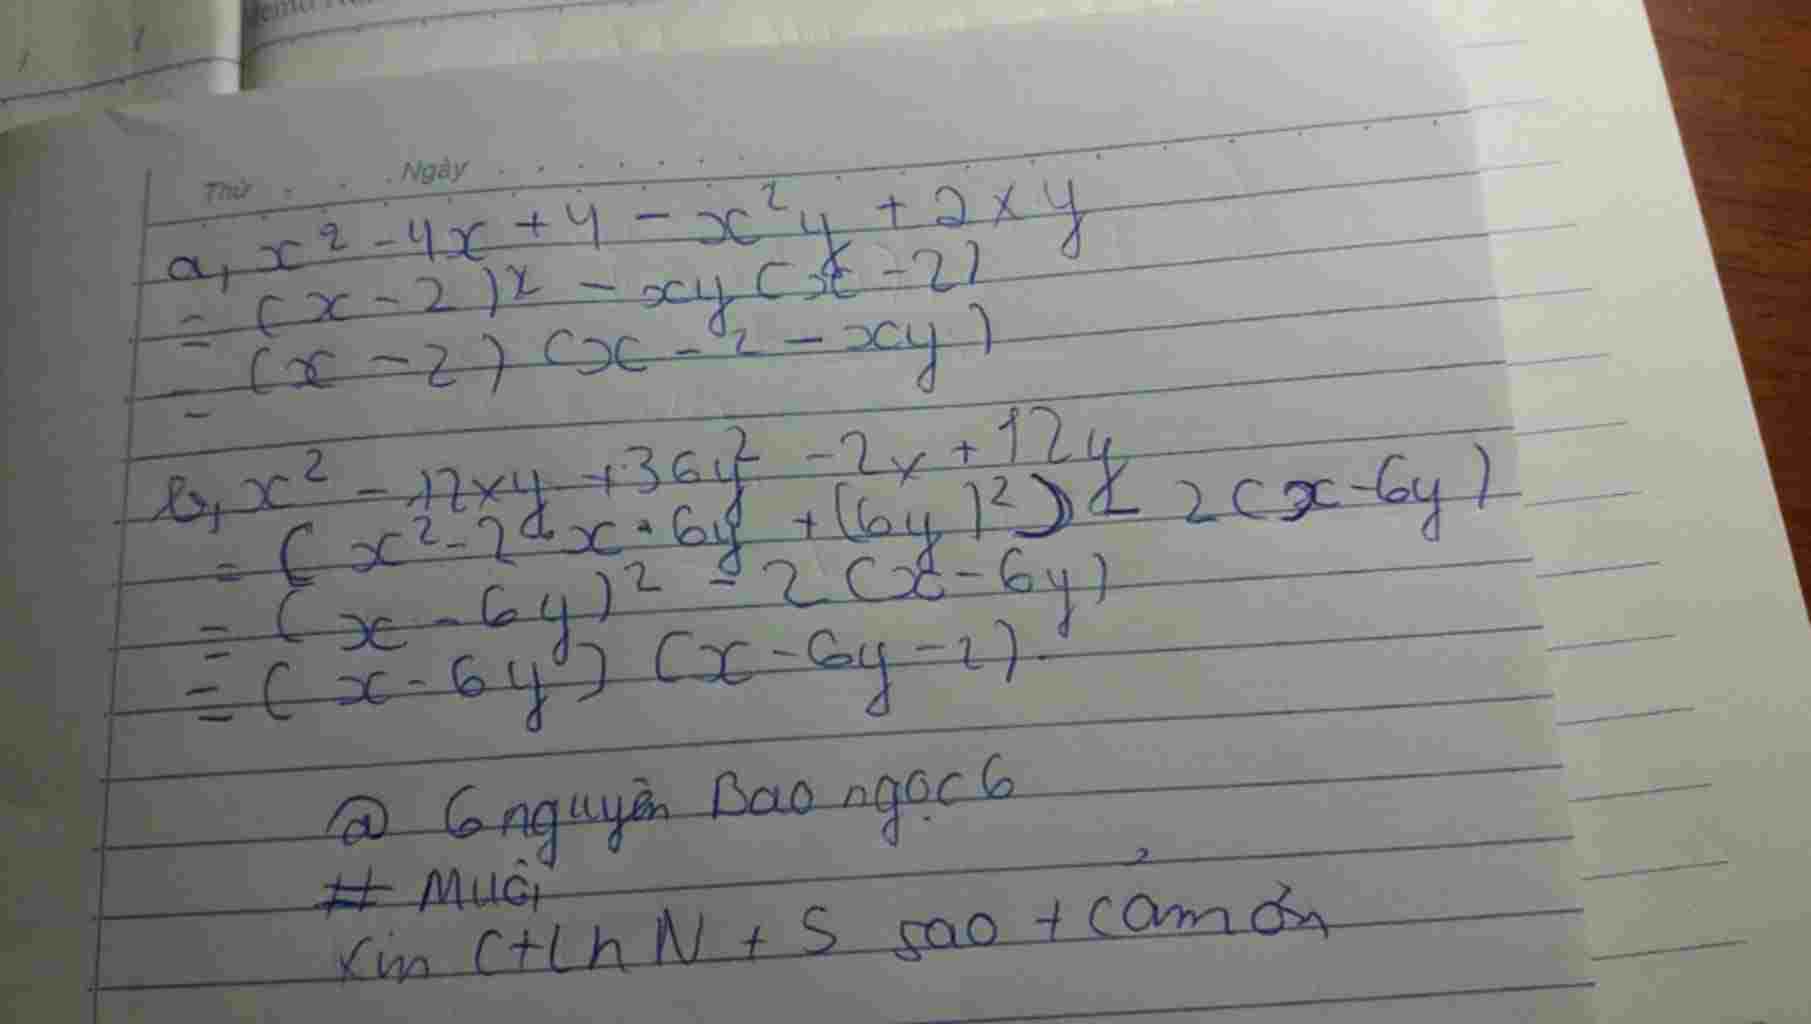 Thứ Ngày
a, x² - 4x + 4 - x²y + 2xy
= (x - 2)² - xy(x - 2)
= (x - 2) (x - 2 - xy)
b, x² - 12xy + 36y² - 2x + 12y
= (x² - 2 . x . 6y + (6y)²) - 2(x - 6y)
= (x - 6y)² - 2(x - 6y)
= (x - 6y) (x - 6y - 2).
@ 6nguyên Bao ngọc6
# Muối
Xin CtLhN + 5 sao + cảm ơn